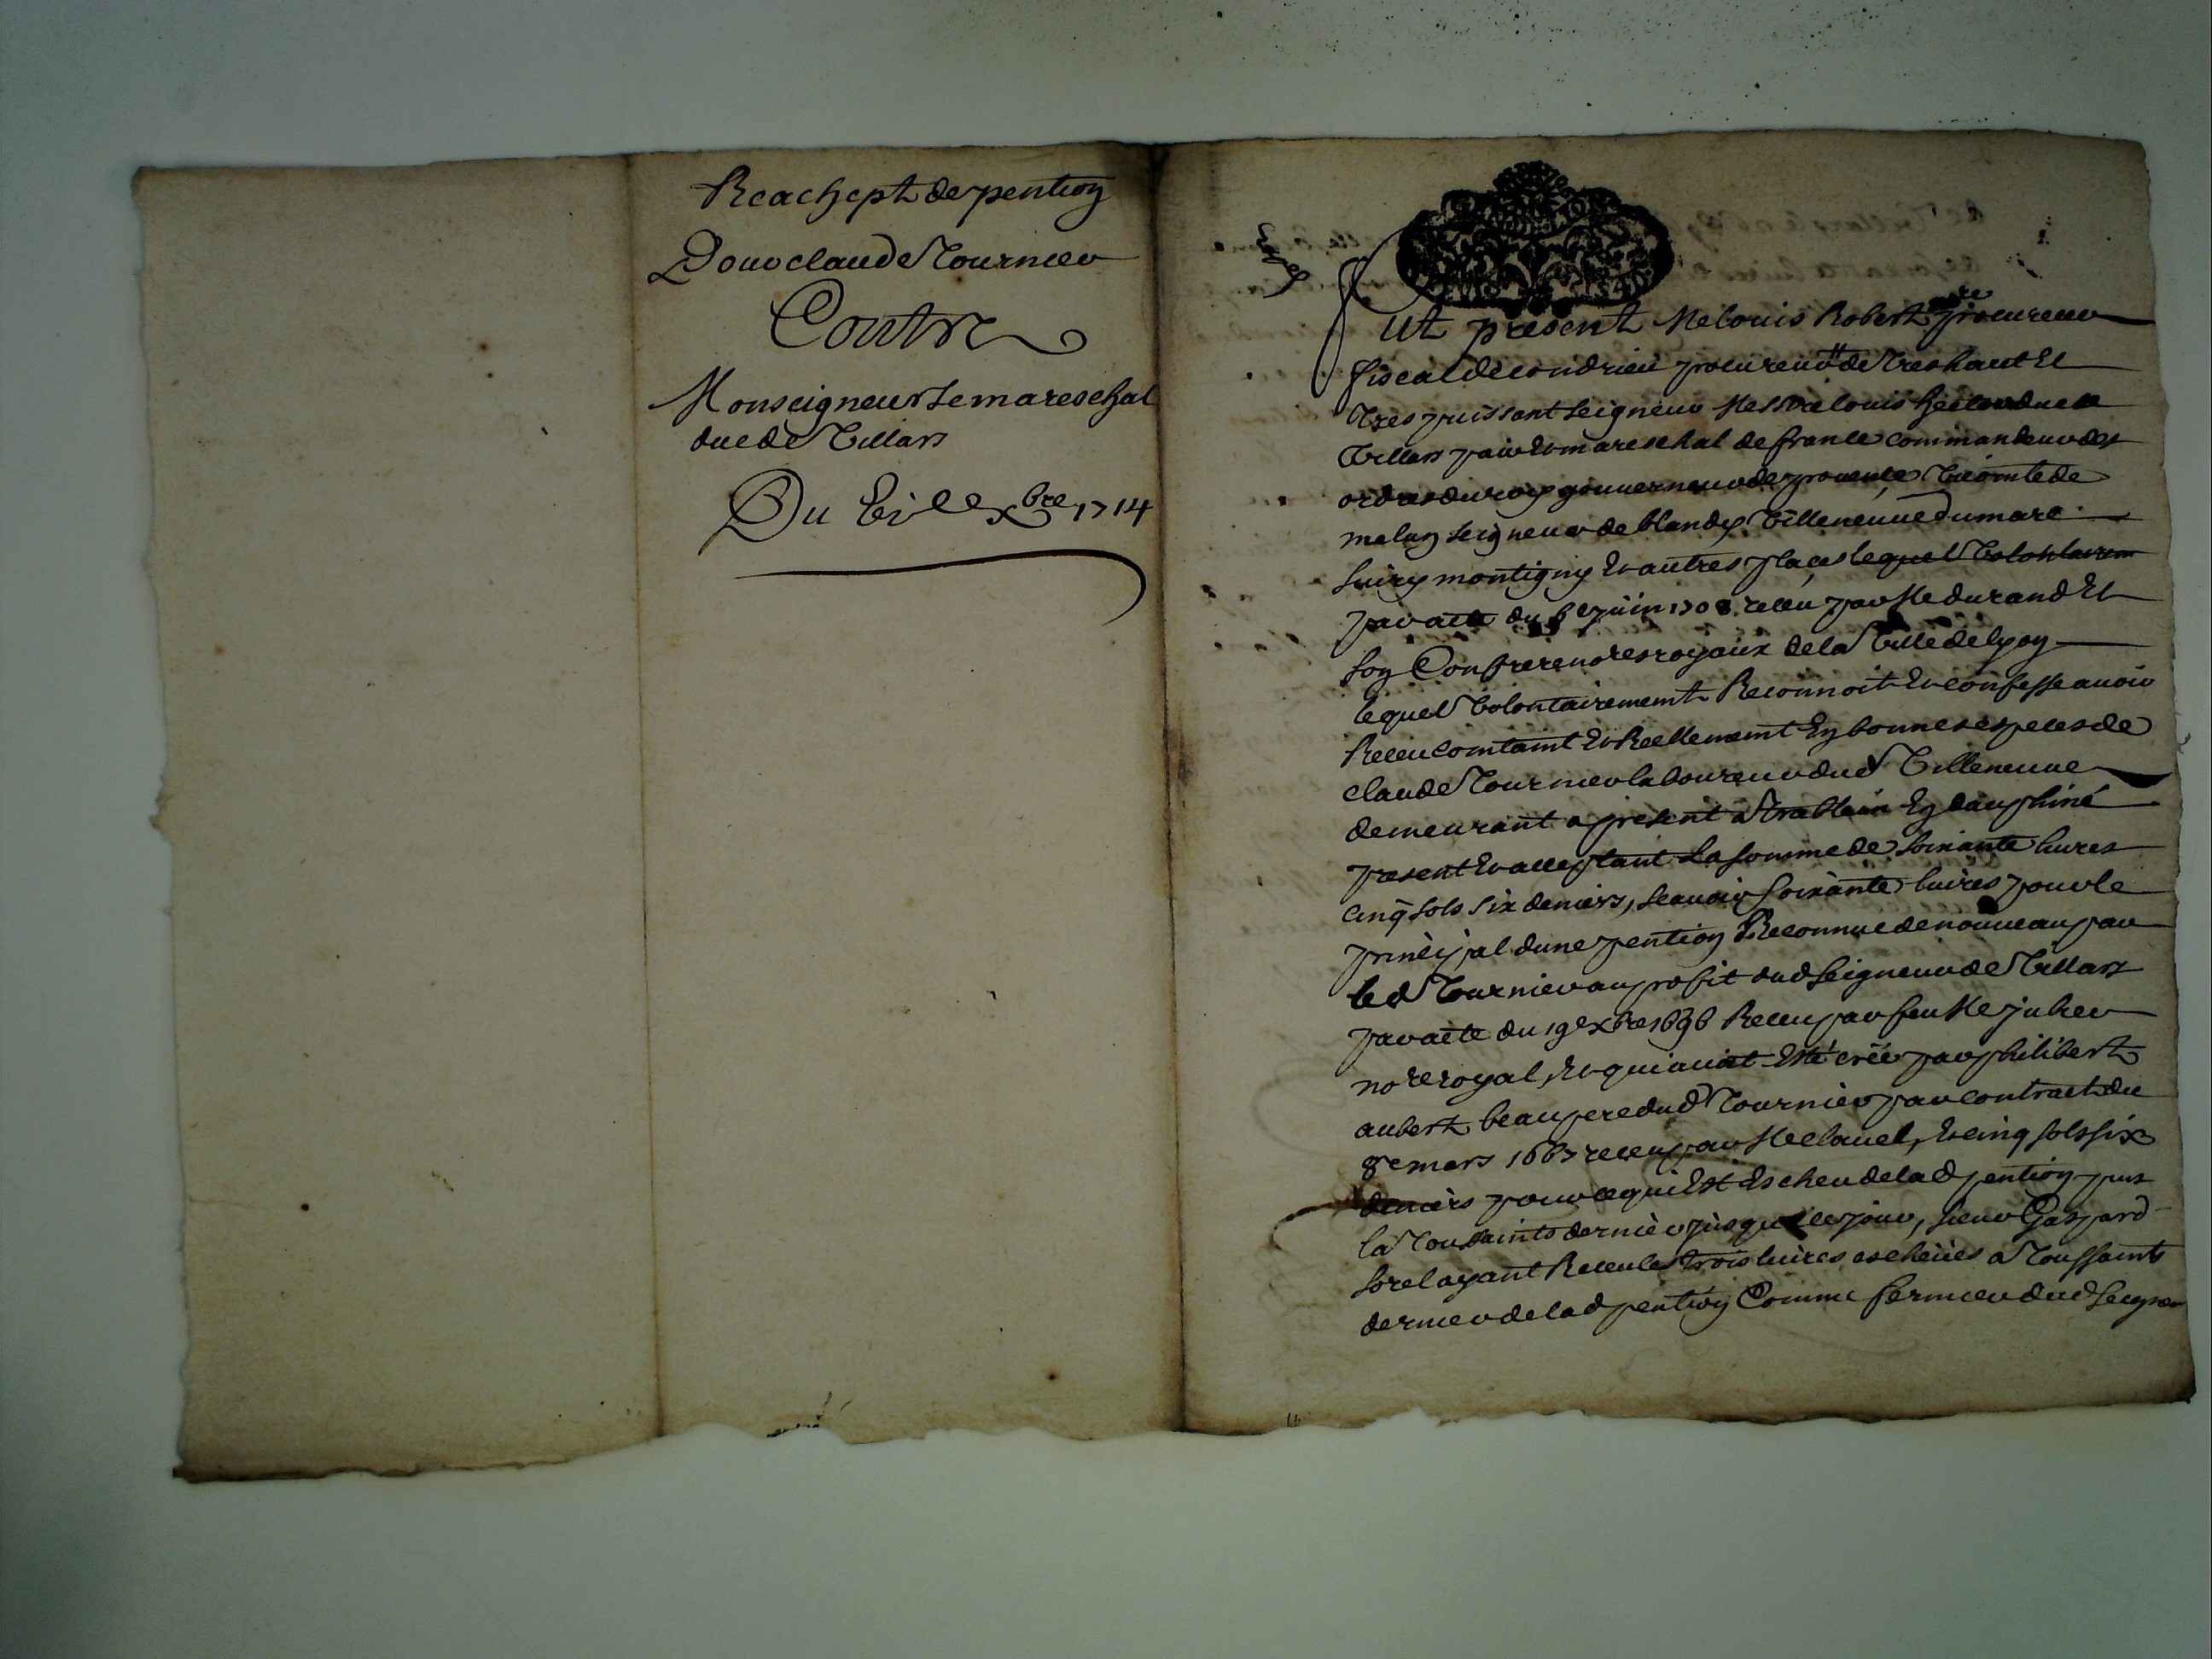 Reachept de pention
Pour claude Tournier
Contre
Monseigneur le mareschal
duc de Villars
Du xbre 1714
fut present Me Louis Robert procureur
fiscal de condrieu procureur de Tres haut Et
Tres puissant seigneur Messre louis hector duc de
Villars pair Et mareschal de france commandeur des
ordres du roy gouverneur de provence Vicomte de
melun seigneur de blandy Villeneuve Dumarc
suiry montigny Et autres places lequel Volontairem
par acte du juin 1708 receu par Me durand Et
son Confrere nores royaux de la Ville de lyon
lequel Volontairement Reconnoit Et confesse avoir
Receu comtamt Et Reellement En bonnes especes de
claude Tournier laboureur dud Villeneuve
demeurant a present a En dauphiné
present Et acceptant La somme de soixante livres
cinq sols six deniers, scavoir soixante livres pour le
principal dune pention Reconnue de nouveau par
led Tournier au profit dud seigneur de Villars
par acte du 19e xbre 1696 Receu par feu Me jullier
nore royal, Et qui avoit Esté créée par philibert
aubert beaupere dud Tournier par contract du
8e mars 1667 receu par Me clavel, Et cinq sols six
deniers pour ce qui Est Escheu de lad pention puis
la Toussaints dernier jusques a ce jour, sieur Gaspard
sorel ayant Receu les trois livres escheües a Toussaints
dernier de lad pention Comme fermier dud seigneur